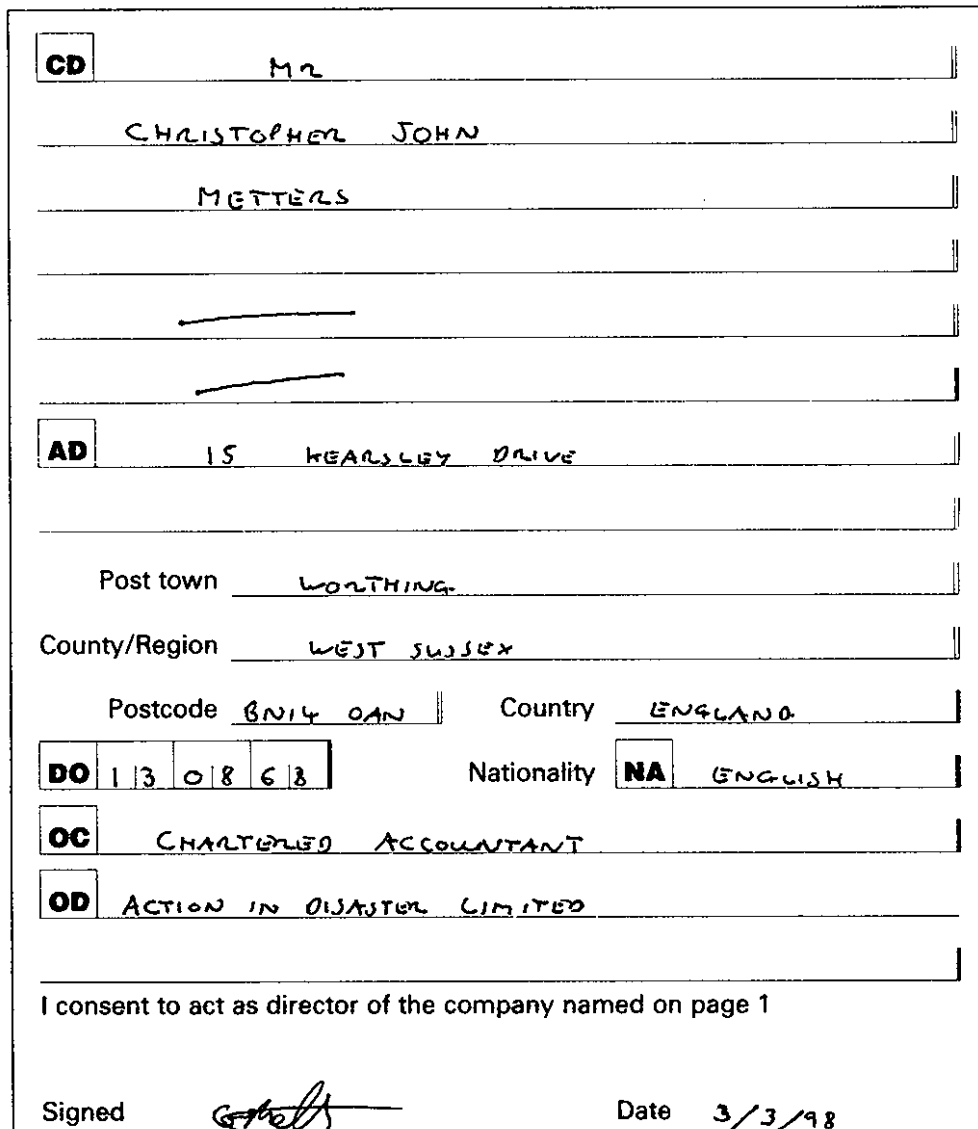 CD Mr
CHRISTOPHER JOHN
METTERS
AD 15 HEARSLEY DRIVE
Post town WORTHING
County/Region WEST SUSSEX
Postcode BN14 0AN Country ENGLAND
DO 13 08 63 Nationality NA ENGLISH
OC CHARTERED ACCOUNTANT
OD ACTION IN DISASTER LIMITED
I consent to act as director of the company named on page 1
Signed Date 3/3/98